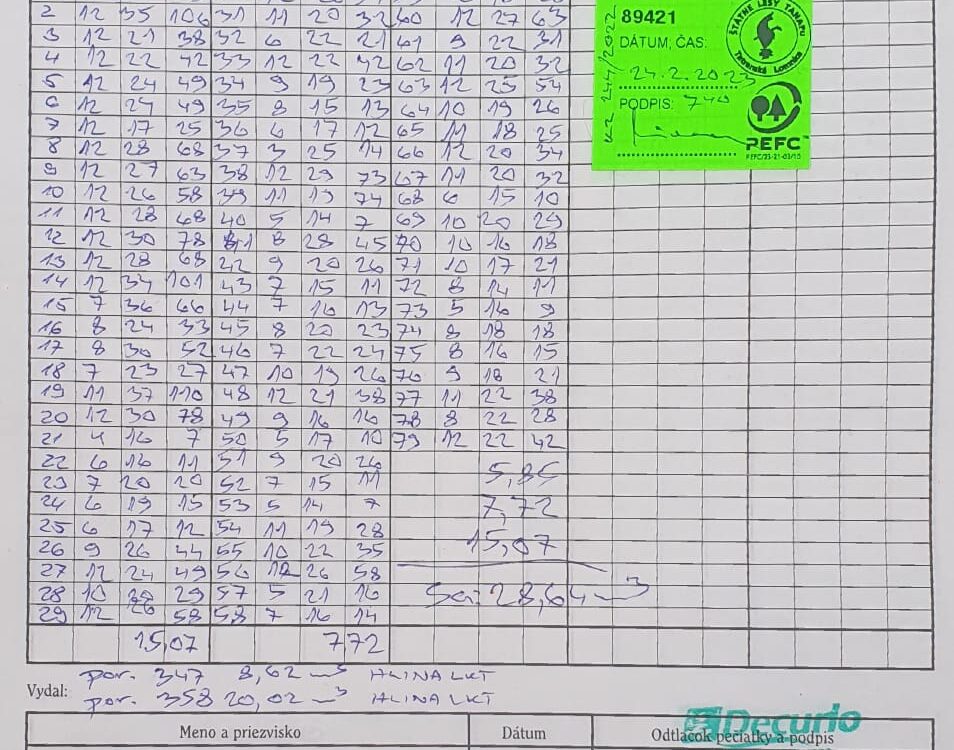 2 12 35 106 31 11 20 32 60 12 27 63
3 12 21 38 32 6 22 21 61 9 22 31
4 12 22 42 33 12 22 42 62 11 20 32
5 12 24 49 34 9 19 23 63 12 25 54
6 12 24 49 35 8 15 13 64 10 19 26
7 12 17 25 36 6 17 12 65 11 18 25
8 12 28 68 37 3 25 14 66 12 20 34
9 12 27 63 38 12 29 73 67 11 20 32
10 12 26 58 39 11 19 74 68 6 15 10
11 12 28 68 40 5 14 7 69 10 20 29
12 12 30 78 41 8 28 45 70 10 16 18
13 12 28 68 42 9 20 26 71 10 17 21
14 12 34 101 43 7 15 11 72 8 14 11
15 7 36 66 44 7 16 13 73 5 16 9
16 8 24 33 45 8 20 23 74 8 18 18
17 8 30 52 46 7 22 24 75 8 16 15
18 7 23 27 47 10 19 26 76 9 18 21
19 11 37 110 48 12 21 38 77 11 22 38
20 12 30 78 49 9 16 16 78 8 22 28
21 4 16 7 50 5 17 10 79 12 22 42
22 6 16 11 51 9 20 26 5,85
23 7 20 20 52 7 15 11
24 6 19 15 53 5 14 7 7,72
25 6 17 12 54 11 19 28
26 9 26 44 55 10 22 35 15,07
27 12 24 49 56 12 26 58
28 10 29 57 5 21 16 Sa: 28,64 m3
29 12 26 58 58 7 16 14
15,07 7,72
89421
DÁTUM, ČAS:
24.2.2023
PODPIS: 740
KZ 244/2022
ŠTÁTNE LESY TANAPU
Tatranská Lomnica
PEFC™
PEFC/23-21-03/10
por. 347 8,62 m3 HLINA LKT
Vydal:
por. 358 20,02 m3 HLINA LKT
Decurio
Meno a priezvisko Dátum Odtlačok pečiatky a podpis